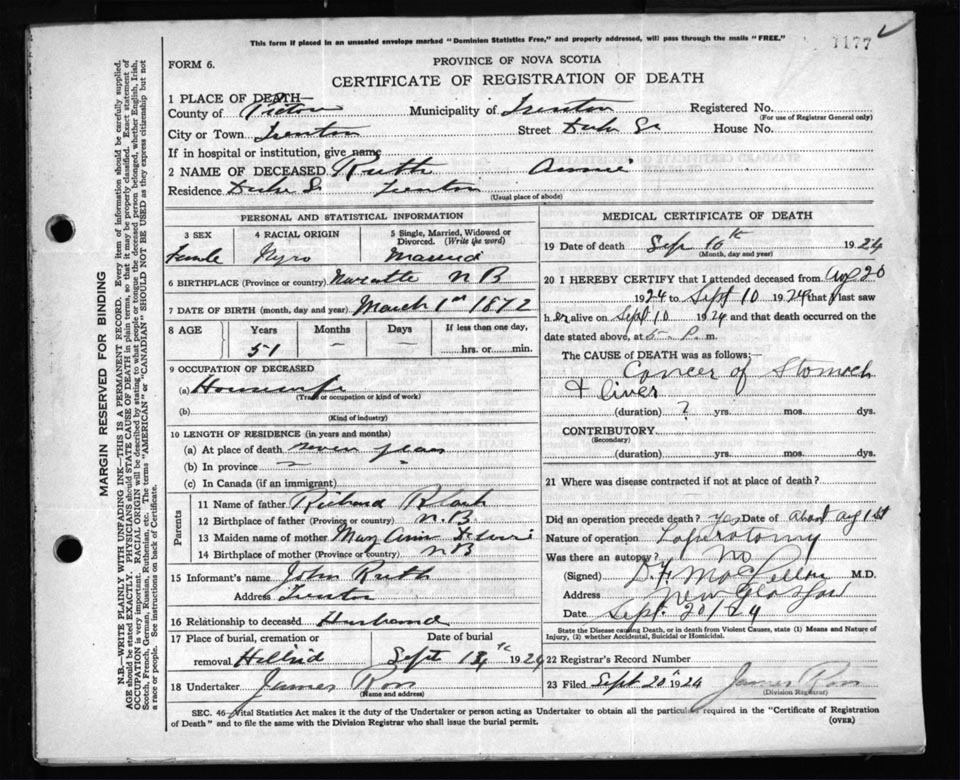 This form if placed in an unsealed envelope marked "Dominion Statistics Free," and properly addressed, will pass through the mails "FREE."
1177
FORM 6.
PROVINCE OF NOVA SCOTIA
CERTIFICATE OF REGISTRATION OF DEATH
1 PLACE OF DEATH—
County of Pictou Municipality of Trenton Registered No.
(For use of Registrar General only)
City or Town Trenton Street Duke St House No.
If in hospital or institution, give name
2 NAME OF DECEASED Ruth Annie
Residence Duke St Trenton
(Usual place of abode)
PERSONAL AND STATISTICAL INFORMATION
3 SEX 4 RACIAL ORIGIN 5 Single, Married, Widowed or Divorced. (Write the word)
Female Married
6 BIRTHPLACE (Province or country) N B
7 DATE OF BIRTH (month, day and year) March 1st 1872
8 AGE Years Months Days If less than one day,
51 — — hrs. or min.
9 OCCUPATION OF DECEASED
(a) Housewife
(Trade or occupation or kind of work)
(b)
(Kind of industry)
10 LENGTH OF RESIDENCE (in years and months)
(a) At place of death seven years
(b) In province —
(c) In Canada (if an immigrant)
Parents
11 Name of father Richard
12 Birthplace of father (Province or country) N.B.
13 Maiden name of mother Mary Ann
14 Birthplace of mother (Province or country) N B
15 Informant's name John Ruth
Address Trenton
16 Relationship to deceased Husband
17 Place of burial, cremation or Date of burial
removal Sept 1924
18 Undertaker James Ross
(Name and address)
MEDICAL CERTIFICATE OF DEATH
19 Date of death Sep 10th 1924
(Month, day and year)
20 I HEREBY CERTIFY that I attended deceased from Aug 20
1924 to Sept 10 1924 that I last saw
h er alive on Sept 10 1924 and that death occurred on the
date stated above, at 5 P. m.
The CAUSE of DEATH was as follows:—
Cancer of Stomach
& liver
(duration) ? yrs. mos. dys.
CONTRIBUTORY
(Secondary)
(duration) yrs. mos. dys.
21 Where was disease contracted if not at place of death?
Did an operation precede death? yes Date of About Aug 1st
Nature of operation Laporotomy
Was there an autopsy? No
(Signed) M.D.
Address New Glasgow
Date Sept 20/24
State the Disease causing Death, or in death from Violent Causes, state (1) Means and Nature of
Injury, (2) whether Accidental, Suicidal or Homicidal.
22 Registrar's Record Number
23 Filed Sept 20th 1924 James Ross
(Division Registrar)
SEC. 46—Vital Statistics Act makes it the duty of the Undertaker or person acting as Undertaker to obtain all the particulars required in the "Certificate of Registration
of Death" and to file the same with the Division Registrar who shall issue the burial permit.
(OVER)
MARGIN RESERVED FOR BINDING
N.B.—WRITE PLAINLY WITH UNFADING INK—THIS IS A PERMANENT RECORD. Every item of information should be carefully supplied.
AGE should be stated EXACTLY. PHYSICIANS should STATE CAUSE OF DEATH in plain terms, so that it may be properly classified. Exact statement of
OCCUPATION is very important. RACIAL ORIGIN will be described by stating to what people or tongue the deceased person belonged, whether English, Irish,
Scotch, French, German, Russian, Ruthenian, etc. The terms "AMERICAN" or "CANADIAN" SHOULD NOT BE USED as they express citizenship but not
a race or people. See instructions on back of Certificate.